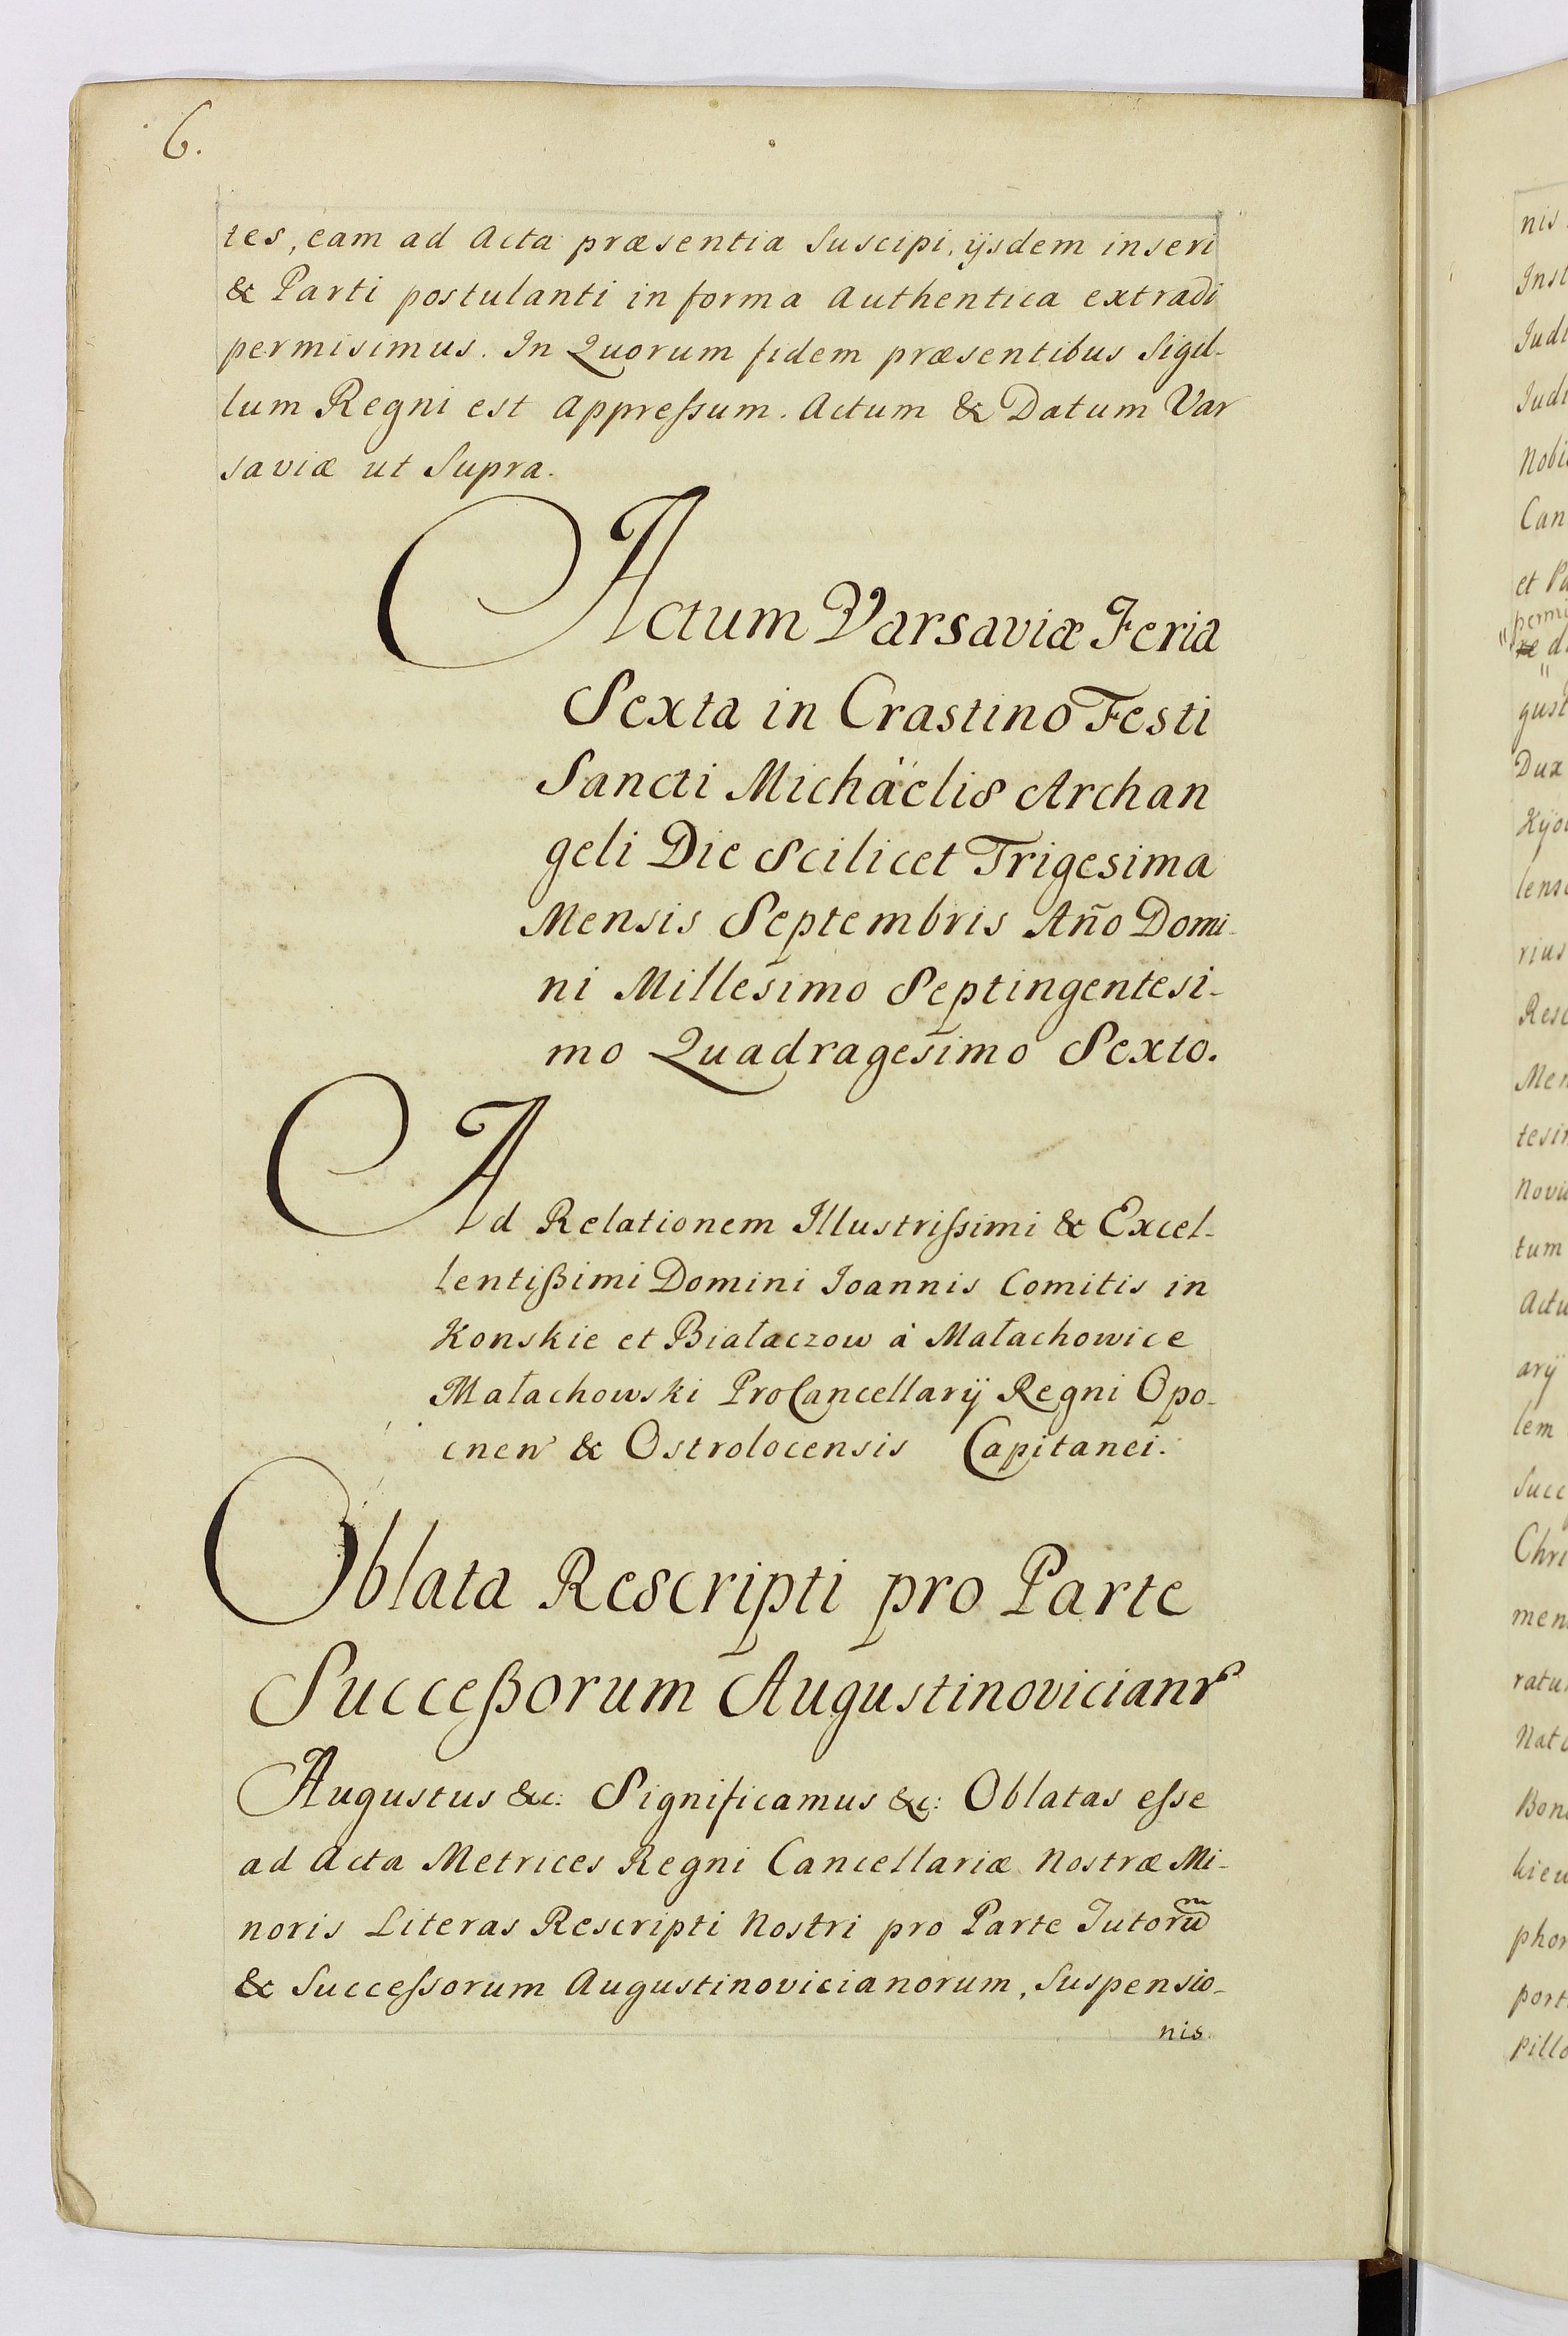 6.
tes, eam ad Acta præsentia Suscipi, ijsdem inseri
& Parti postulanti in forma Authentica extradi
permisimus. In Quorum fidem præsentibus Sigil-
lum Regni est Appreſsum. Actum & Datum Var
saviæ ut Supra.
Actum Varsaviæ Feria
Sexta in Crastino Festi
Sancti Michäelis Archan
geli Die Scilicet Trigesima
Mensis Septembris Año Domi-
ni Millesimo Septingentesi-
mo Quadragesimo Sexto.
Ad Relationem Illustriſsimi & Excel-
lentißimi Domini Ioannis Comitis in
Konskie et Białaczow à Małachowice
Małachowski ProCancellarij Regni Opo-
cnen & Ostrolocensis Capitanei.
Oblata Rescripti pro Parte
Succeßorum Augustinovicianr
Augustus &c: Significamus &c: Oblatas eſse
ad Acta Metrices Regni Cancellariæ Nostræ Mi-
noris Literas Rescripti Nostri pro Parte Tutorũ
& Succeſsorum Augustinovicianorum, Suspensio-
nis
nis
Inst
Judi
Judi
Nobi
Can
et Pa
permi
re di
gust
Dux
Kijo
lens
rius
Resc
Men
tesi
Novi
tum
Actu
arij
lem
Succ
Chri
men
ratu
Nat
Bon
kien
phor
port
pill